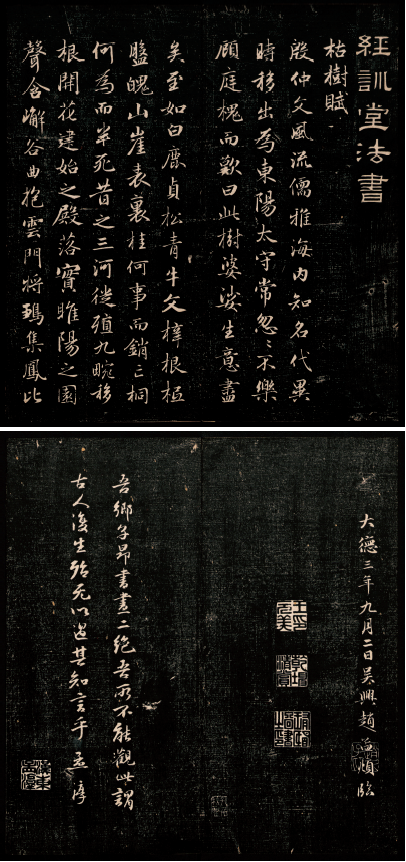 經訓堂法書
枯樹賦
殷仲文風流儒雅海内知名代異
時移出為東陽太守常忽忽不樂
顧庭槐而歎曰此樹婆娑生意盡
矣至如白鹿貞松青牛文梓根柢
盤魄山崖表裏桂何事而銷亡桐
何為而半死昔之三河徙殖九畹移
根開花建始之殿落實睢陽之園
聲含嶰谷曲抱雲門將鶵集鳳比
大德三年九月二日吳興趙孟頫臨
吾鄉子昂書畫二絶吾所不能觀此謂
古人復生殆无以過其知言乎 孟淳